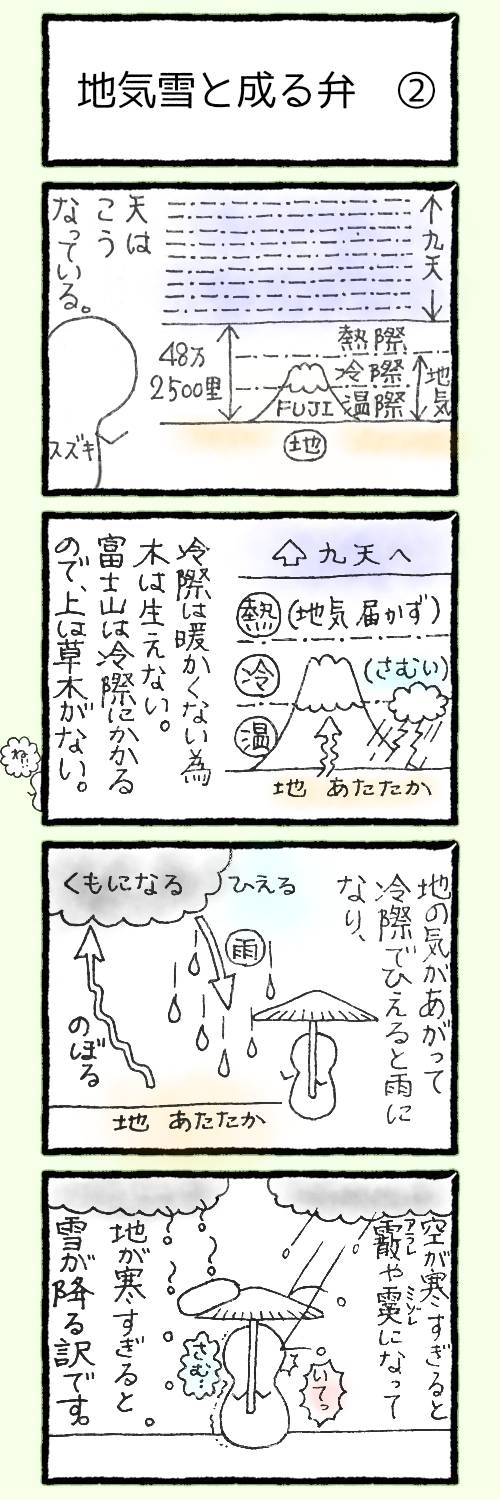 地気雪と成る弁　②
天は
こう
なっている。
九天
熱際
冷際
温際
地気
48万
2500里
FUJI
地
スズキ
九天へ
熱 (地気届かず)
冷 (さむい)
温
地 あたたか
冷際は暖かくない為
木は生えない。
富士山は冷際にかかる
ので、上は草木がない。
ね
地の気があがって
冷際でひえると雨に
なり、
くもになる
ひえる
雨
のぼる
地 あたたか
空が寒すぎると
霰や霙になって
アラレ
ミゾレ
いてっ
さむ…
地が寒すぎると
雪が降る訳です。